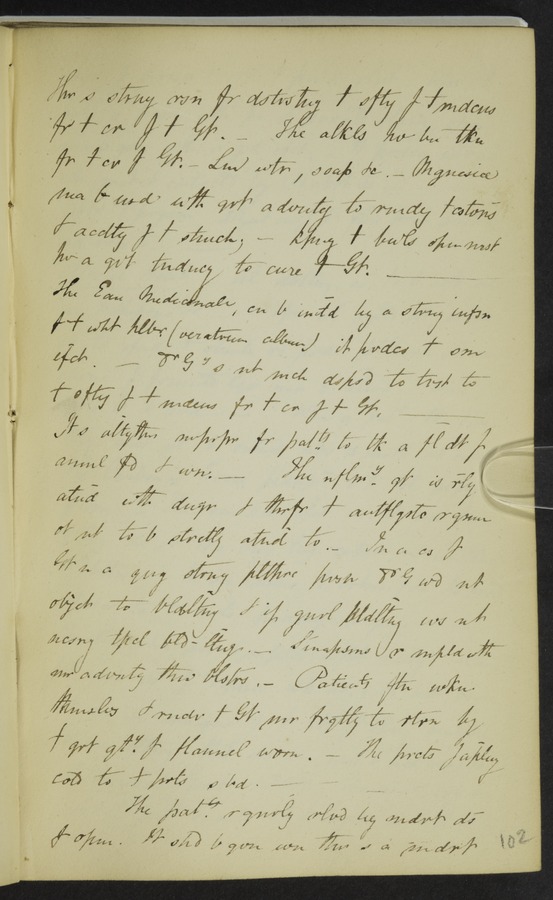 Thr s strng rsn fr dstrstng t efty f t mdcns
fr t cr f t Gt. — The alkls hv bn tkn
fr t cr f Gt. — Lm wtr, soap &c. — Mgnesia
ma b usd wth grt advntg to rmdy t cstvns
& acdty f t stmch; — kpng t bwls opn mst
hv a grt tndncy to cure t Gt. —
The Eau Medicinale, cn b imtd by a strng infsn
f t wht hlbr (veratrum album) it prdcs t sm
efct. — Dr G s nt mch dspsd to trst to
t efty f t mdcns fr t cr f t Gt. —
It s altgthr imprpr fr patts to tk a fl dt f
anml fd & wn. — The nflmy gt is rly
atnd wth dngr & thrfr t antflgstc rgmn
ot nt to b strctly atnd to. — In a cs f
Gt n a yng strng plthrc prsn Dr G wd nt
objct to bldltng & if gnrl bldltng ws nt
ncsry tpcl bld-ltng. — Sinapsms r mpld wth
mr advntg thn blstrs. — Patients ftn wkn
thmslvs & rndr t Gt mr frqtly to rtrn by
t grt qty f flannel worn. — The prcts f aplng
cold to t prts s bd. —
The patts r gnrly rlvd by mdrt ds
f opm. It shd b gvn wn thr s a mdrt
102